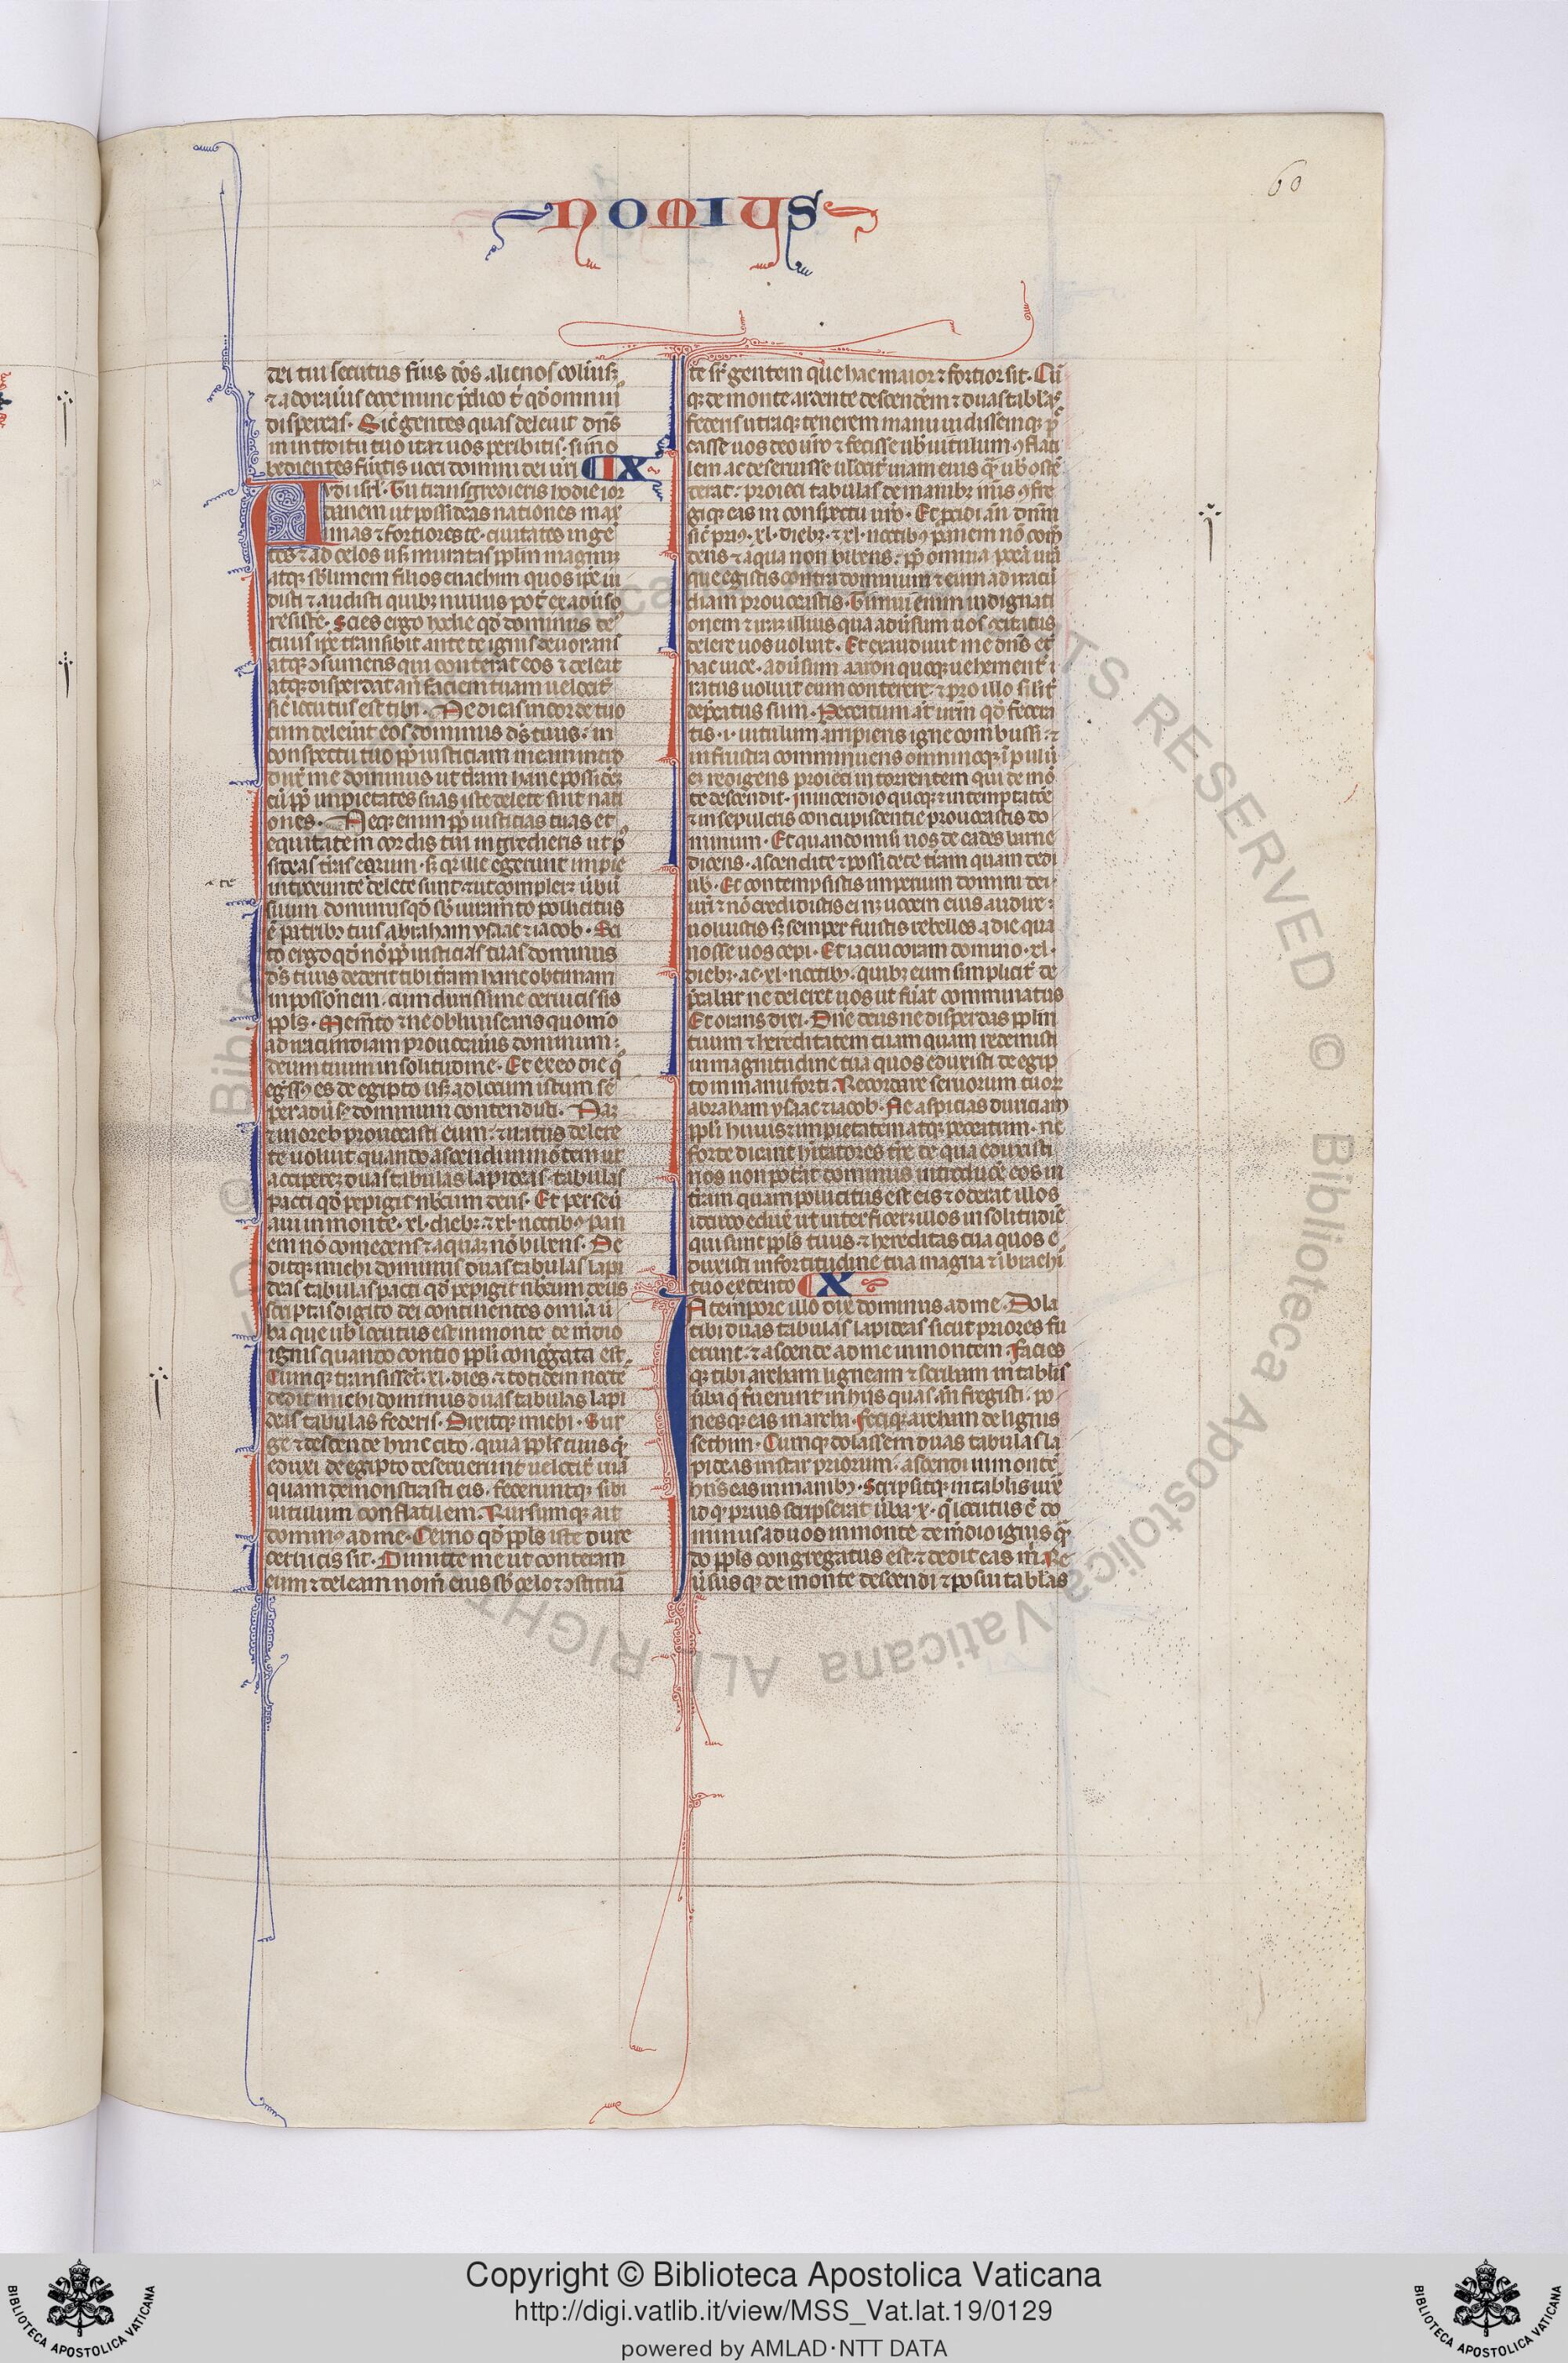 NOMIUS
60
dei tui secutus fu͛is dōs alienos colu͛isqꝫ
⁊ adorau͛is ecce nunc p̄dico t̄ qd̄ omnīo
dispereas. Sic̄ gentes quas deleuit dn̄s
in introitu tuo ita ⁊ uos peribitis. si ino
bedientes fu͛itis uoci domini dei ur̄i IX
Audi isrl̄. Tu transgredieris hodie ior
danem ut possideas nationes max
imas ⁊ fortiores te. ciuitates inge
tes ⁊ ad celos usqꝫ muratas pplm̄ magnū
atqꝫ sb̄limem filios enachim quos ip̄e ui
disti ⁊ audisti quibꝫ nullus pōt ex adu͛so
resist͛e. Scies ergo hodie qd̄ dominus de
tuus ip̄e transibit ante te ignis deuorans
atqꝫ ↄsumens qui conterat eos ⁊ deleat
atqꝫ disperdat an̄ faciem tuam uelocit͛
sic̄ locutus est tibi. Ne dicas in corde tuo
cum deleu͛it eos dominus ds̄ tuus. in
conspectu tuo. ꝓpt̄ iusticiam meam intro
dux̄ me dominus ut t͛ram hanc possid͛eꝫ
cū ꝓpt̄ impietates suas iste delete sint nati
ones. Neqꝫ enim ꝓpt̄ iusticias tuas et
equitatem cordis tui ingredieris ut pos
sideas t͛ras eorum. sꝫ qꝛ ille egerunt impie
te
introeunte delete sunt. ⁊ ut compleret u͛bū
suum dominus qd̄ sb̄ iuram̄to pollicitus
ē patribꝫ tuis abraham ysaac ⁊ iacob. Sci
to ergo qd̄ nō ꝓpt̄ iusticias tuas dominus
ds̄ tuus dederit tibi t͛ram hanc obtimam
in possōnem. cum durissime ceruicis sis
ppls̄. Mem̄to ⁊ ne obliuiscaris quomō
ad iracundiam prouocau͛is dominum
deum tuum in solitudine. Et ex eo die q͛
egꝛ̄ssꝰ es de egipto usqꝫ ad locum istum sē
per adu͛sꝫ dominum contendisti. Naꝫ
⁊ in oreb prouocasti eum. ⁊ iratus delere
te uoluit quando ascendi in mōtem ut
accipereꝫ duas tabulas lapideas. tabulas
pacti qd̄ pepigit nb̄cum deus. Et perseu͛
aui in monte. xl. diebꝫ ⁊ xl. noctibꝰ pan
em nō comedens ⁊ aquaꝫ nō bibens. De
ditqꝫ michi dominus duas tabulas lapi
deas tabulas pacti qd̄ pepigit nb̄cum deus
scriptas digito dei continentes omīa u͛
ba que ub̄ locutus est in monte de mēdio
ignis quando contio ppli cong͛gata est.
Cumqꝫ transissent. xl. dies. ⁊ totidem nocte
dedit michi dominus duas tabulas lapi
deas tabulas federis. Dixitqꝫ michi. Sur
ge ⁊ descende hinc cito. quia ppls̄ tuus q͛
eduxi de egipto deseruerunt uelocit͛ uiā
quam demonstrasti eis. feceruntqꝫ sibi
uitulum conflatilem. Rursumqꝫ ait
dominꝰ ad me. Cerno qd̄ ppls̄ iste dure
ceruicis sit. Dimitte me ut conteram
eum ⁊ deleam nom̄ eius sb̄ celo ⁊ ↄstituā
te sr̄ gentem que hac maior ⁊ fortior sit. Cū
qꝫ de monte ardente descend͛em ⁊ duas tablas
federis utraqꝫ tenerem manu uidissemqꝫ pec
casse uos deo ur̄o ⁊ fecisse ub̄ uitulum ↄflati
lem ac deseruisse uelocit͛ uiam eius q̄ ub̄ osten
derat. proieci tabulas de manibꝫ meis ↄfre
giqꝫ eas in conspectu ur̄o. Et ꝓcidi an̄ dnm̄
sic̄ priꝰ. xl. diebꝫ. ⁊ xl. noctibꝰ panem nō com
dens ⁊ aqua non bibens. ꝓpt̄ omnia pecc̄a ur̄a
que egistis contra dominum ⁊ eum ad iracū
diam prouocastis. Timui enim indignati
onem ⁊ iram illius qua adu͛sum uos cōcitatus
delere uos uoluit. Et exaudiuit me dn̄s et
hac uice. adu͛sum aaron quoqꝫ uehement͛ i
ratus uoluit eum conterere. ⁊ pro illo silit͛
dep͛catus sum. Peccatum at̄ ur̄m qd̄ fecera
tis. i. uitulum arripiens igne combussi. ⁊
in frustra comminuens omninoqꝫ ī pulu͛
eꝫ redigens proieci in torrentem qui de mō
te descendit. In incendio quoqꝫ ⁊ in temptatōe
⁊ in sepulcris concupiscentie prouocastis do
minum. Et quando misi uos de cades barne
dicens. ascendite ⁊ possidete t͛ram quam dedi
ub̄. Et contempsistis imperium domini dei
ur̄i ⁊ nō credidistis ei neqꝫ uocem eius audire
uoluistis sꝫ semper fuistis rebelles a die qua
nosse uos cepi. Et iacui coram domino. xl.
diebꝫ. ac. xl. noctibꝫ. quibꝫ eum simplicit͛ de
p͛cabar ne deleret uos ut fu͛at comminatus
Et orans dixi. Dn̄e deus ne disperdas pplm̄
tuum ⁊ hereditatem tuam quam redemisti
in magnitudine tua quos eduxisti de egip
to in manu forti. Recordare seruorum tuoꝝ
abraham ysaac ⁊ iacob. Ne aspicias duriciam
ppli huius ⁊ impietatem atqꝫ peccatum. ne
forte dicant hitatores t͛re de qua eduxisti
nos non pot͛at dominus introduc͛e eos in
t͛ram quam pollicitus est eis ⁊ oderat illos
idcirco eduxit ut interficeret illos in solitudīe
qui sunt ppls̄ tuus ⁊ hereditas tua quos e
duxisti in fortitudine tua magna ⁊ ī brachio
tuo extento X
In tempore illo dix̄ dominus ad me. Dola
tibi duas tabulas lapideas sicut priores fu
erunt. ⁊ ascende ad me in montem. Facies
qꝫ tibi archam ligneam ⁊ scribam in tablis
u͛ba q̄ fuerunt in hiis quas an̄ fregisti. po
nesqꝫ eas in archa. Feciqꝫ archam de lignis
sethim. Cumqꝫ dolassem duas tabulas la
pideas instar priorum. ascendi in monte
hn̄s eas in manibꝫ. Scripsitqꝫ in tablis iux̄
id q prius scripserat u͛ba. x. q̄ locutus ē do
minus ad uos in monte de medio ignis qn̄
do ppls̄ congregatus est. ⁊ dedit eas m̄. Re
u͛susqꝫ de monte descendi ⁊ posui tablas
© Biblioteca Apostolica Vaticana ALL RIGHTS RESERVED
Copyright © Biblioteca Apostolica Vaticana
http://digi.vatlib.it/view/MSS_Vat.lat.19/0129
powered by AMLAD·NTT DATA
BIBLIOTECA APOSTOLICA VATICANA
BIBLIOTECA APOSTOLICA VATICANA